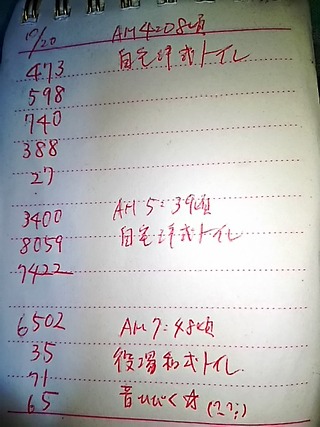 10/20 AM 4:08頃
473 自宅洋式トイレ
598
740
388
27
3400 AM 5:39頃
8059 自宅洋式トイレ
7422
6502 AM 7:48頃
35 役場和式トイレ
71
65 音ひびく☆(??;)